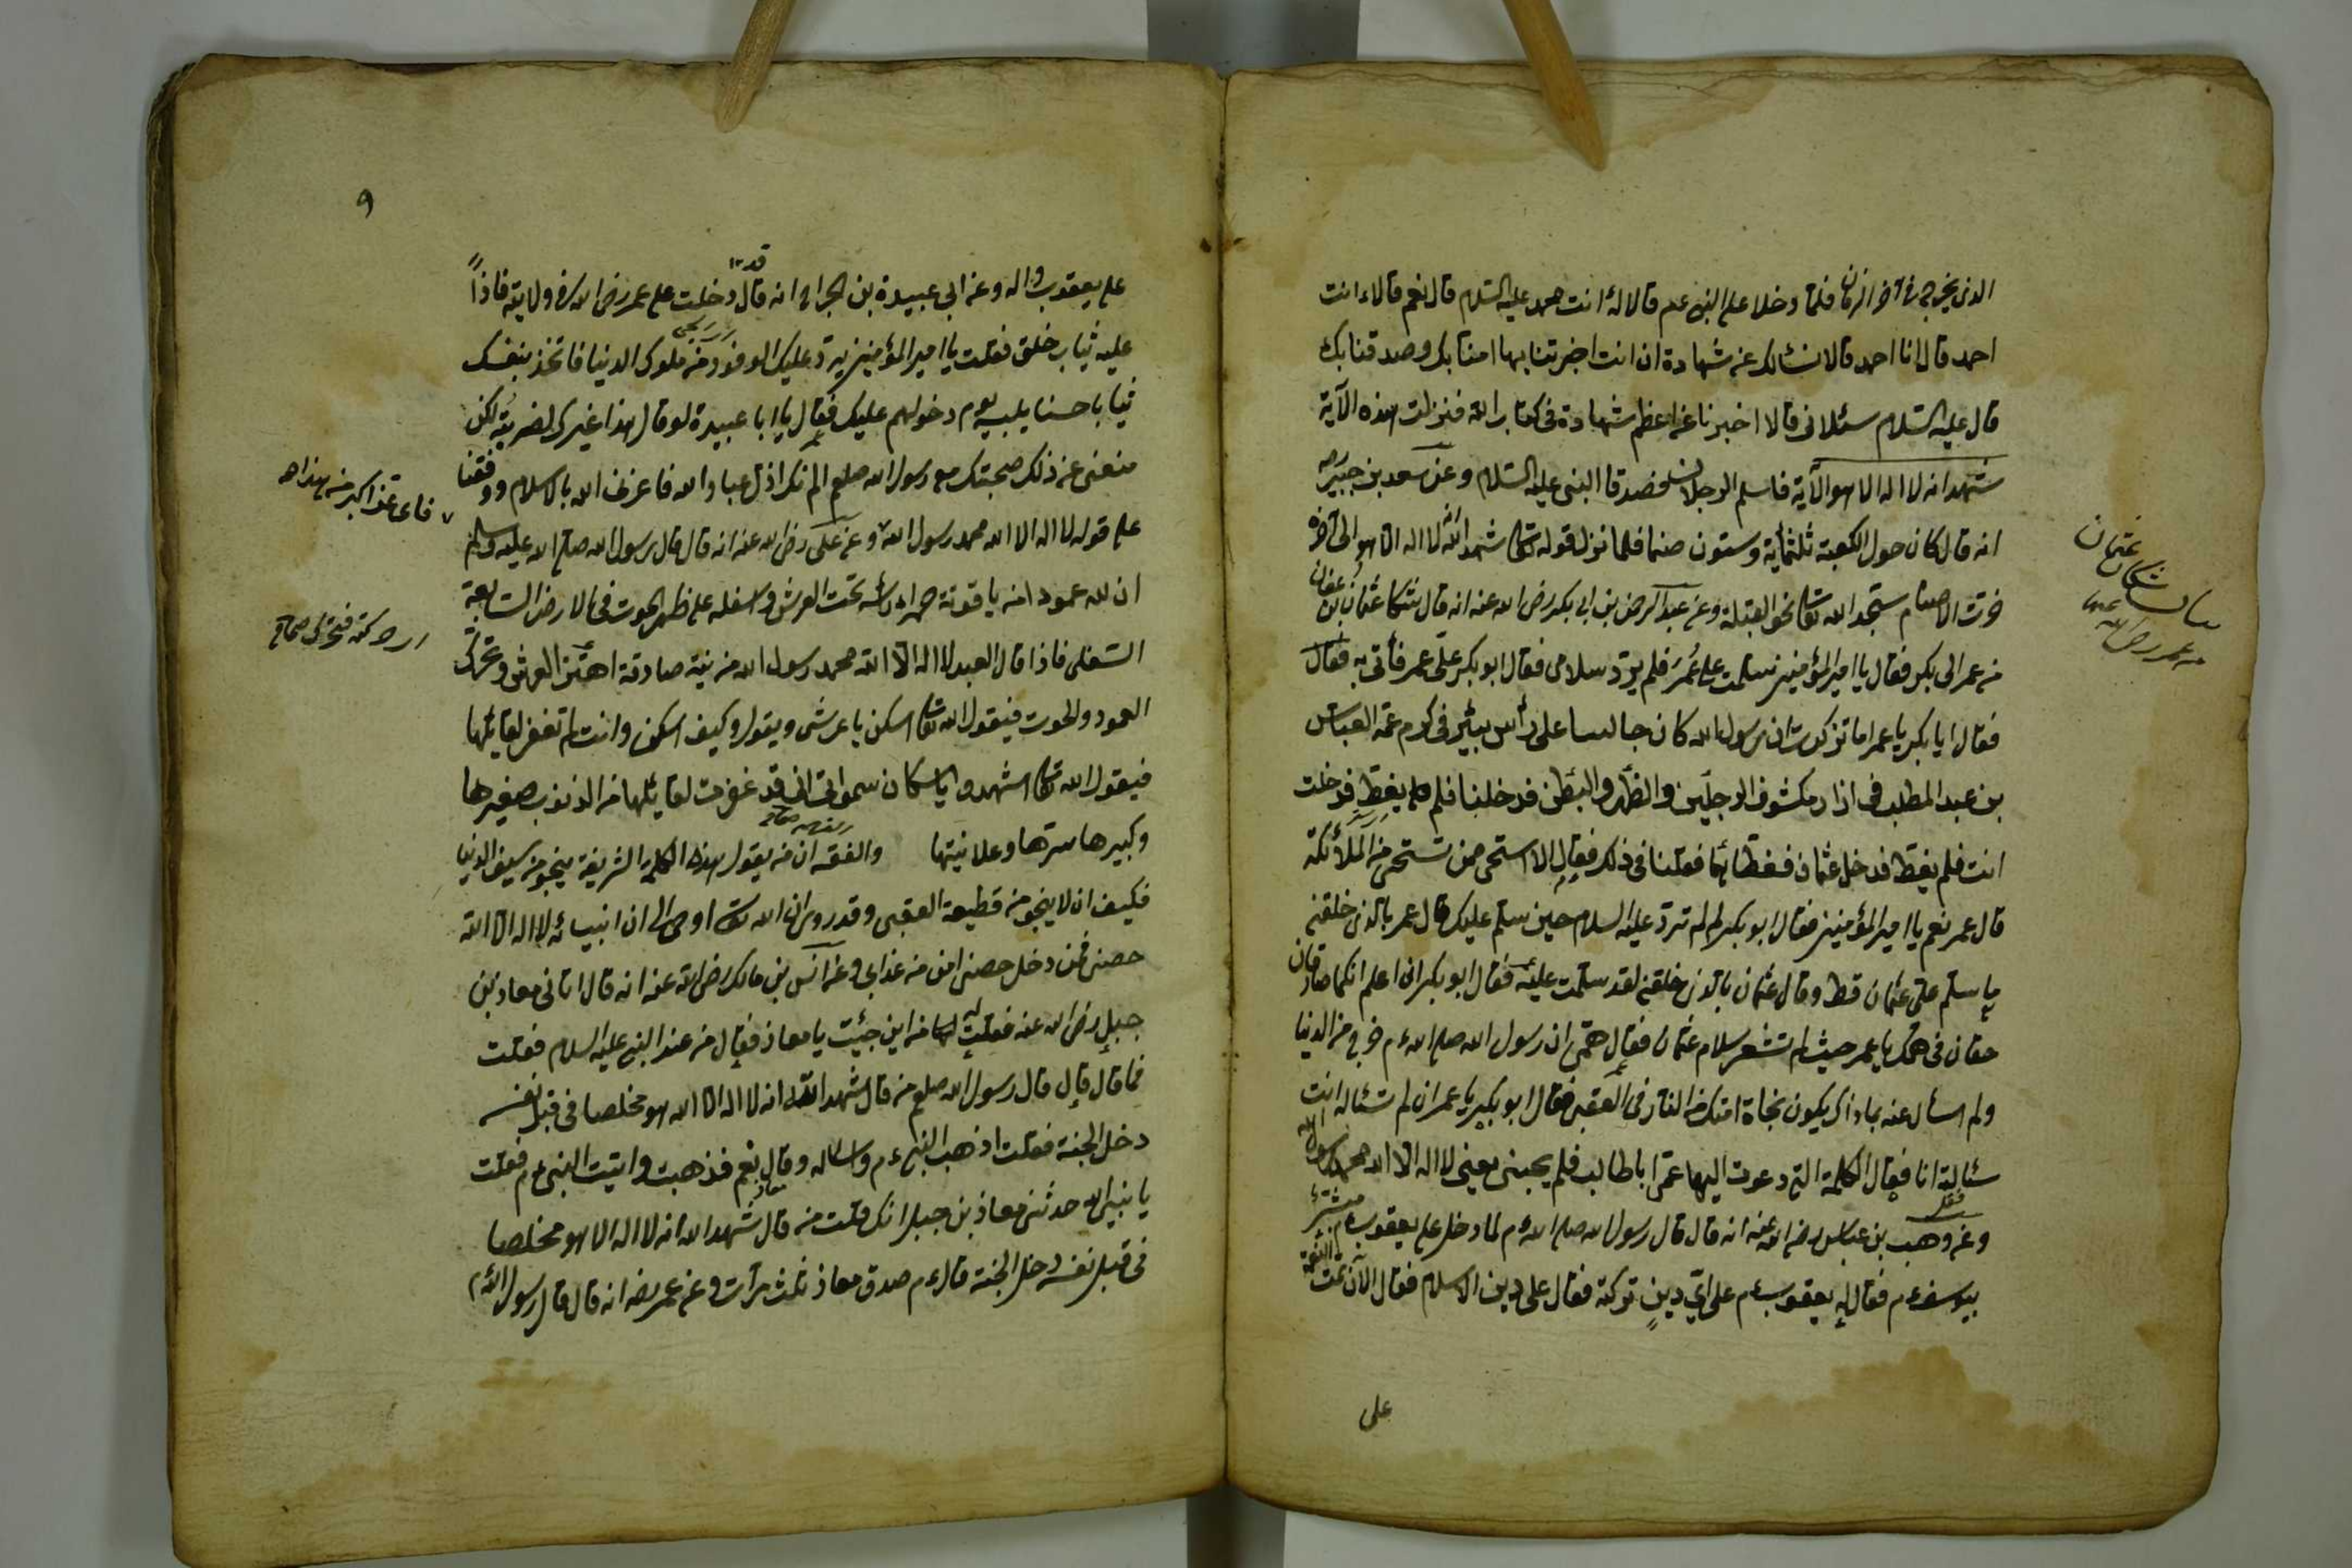 الذى يخرج فى آخر الزمان فلما دخلا على النبى عم قالا له انت محمد عليه السلام قال نعم قالا انت
احمد قال انا احمد قالا نسئالك عن شهادة ان انت اخبرتنا بها امنا بك وصدقنا بك
قال عليه السلام سئلانى قالا اخبرنا عن اعظم شهادة فى كتاب الله فنزلت هذه الآية
شهد انه لا اله الا هو الآية فاسلم الرجلان فصدقا النبى عليه السلام وعن سعد بن جبير رضه
انه قال كان حول الكعبة ثلثمائة وستون صنما فلما نزل قوله تعا شهد الله انه لا اله الا هو الى آخره
خرت الاصنام سجد الله تعا نحو القبلة وعن عبد الرحمن بن ابى بكر رضى الله عنه انه قال شكا عثمان بن عفان
من عمر الى بكر فقال يا امير المؤمنين سلمت على عُمَرَ فلم يردّ سلامى فقال ابو بكر علىّ عمر فأتى به فقال
فقال ابا بكر يا عمر اما تذكرت ان رسول الله كان جالسا على رأس بئير فى كرم عمّه العباس
بن عبد المطلب فى ازار مكشوف الرجلين والظهر والبطن فدخلنا فلم يغطِ فدخلت
انت فلم يغط فدخل عثمان فغطا بها فقلنا فى ذلك فقال الا استحى ممن تستحى منه الملائكة
قال عمر نعم يا امير المؤمنين فقال ابو بكر لم لم تردّ عليه السلام حين سلم عليك قال عمر بالذى خلقنى
ما سلم علىّ عثمان قط وقال عثمان بالذى خلقنى لقد سلمت عليه فقال ابو بكر انى اعلم انكما صادقان
حقان فى همك يا عمر حيث لم تشعر سلام عثمان فقال همّى ان رسول الله صلى الله عم خرج من الدنيا
ولم اسأل عنه بماذا يكون نجاة امتك من النار فى العقبى فقال ابو بكر يا عمر ان لم تسئاله انت
سئالته انا فقال الكلمة التى دعوت اليها عمّى ابا طالب فلم يجبنى يعنى لا اله الا الله محمد رسول الله
وعن وهب بن عباس رضى الله عنه انه قال قال رسول الله صلى الله عم لما دخل على يعقوب عم مبشر
بيوسف عم فقال له يعقوب عم على اىّ دينٍ تركته فقال على دين الاسلام فقال الآن تمت النعمة
على
شكايت عثمان
من عمر رضى الله عنهما
٩
على يعقوب واله وعن ابى عبيدة بن الجراح انه قال قد دخلت على عمر رضى الله فى ولايته فاذاً
عليه ثياب خلق فقلت يا امير المؤمنين يرد عليك الوفود من ملوك الدنيا فاتخذ بنفسك
ثيابا حسنا يلبسه يوم دخولهم عليك فقال يا ابا عبيدة لو قال هذا غيرك لضربته لكن
منعنى عن ذلك صحبتك مع رسول الله صلعم الم نكن اذل عباد الله فاعزنا الله بالاسلام ووفقنا
على قوله لا اله الا الله محمد رسول الله وعن على رضى الله عنه انه قال قال رسول الله صلى الله عليه وسلم
ان لله عمودا من ياقوتة حمراء رأسه تحت العرش واسفله على ظهر الحوت فى الارض السابعة
السفلى فاذا قال العبد لا اله الا الله محمد رسول الله من نية صادقة اهتز العرش وتحرك
العمود والحوت فيقول الله تعا اسكن يا عرشى ويقول وكيف اسكن وانت لم تغفر لقائلها
فيقول الله تعا اشهدوا يا سكان سمواتى انى قد غفرت لقائلها من الذنوب صغيرها
وكبيرها سرها وعلانيتها والفقه ان من يقول هذه الكلمة الشريفة ينجو من سيف الدنيا
فكيف ان لا ينجو من قطيعة العقبى وقد روى ان الله تعا اوحى الى ان انبيائه لا اله الا الله
حصنى فمن دخل حصنى امن من عذابى وعن انس بن مالك رضى الله عنه انه قال اتانى معاذ بن
جبل رضى الله عنه فقلت له من اين جئت يا معاذ فقال من عند النبى عليه السلام فقلت
فما قال قال قال رسول الله صلعم من قال شهد الله انه لا اله الا الله هو مخلصا فى قبل نفسه
دخل الجنة فقلت اذهب النبى عم واساله وقال نعم فذهبت واتيت النبى عم فقلت
يا نبى الله حدثنى معاذ بن جبل انك قلت من قال شهد الله انه لا اله الا هو مخلصا
فى قبل نفسه دخل الجنة قال عم صدق معاذ ثلث مرآت وعن عمر رضه انه قال قال رسول الله عم
فاى عز اكبر من هذا